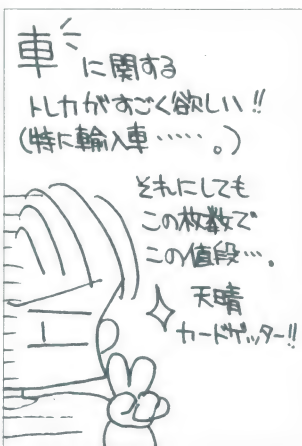 車に関する
トレカがすごく欲しい!!
(特に輸入車……。)
それにしても
この枚数で
この値段…。
天晴
カードゲッター!!